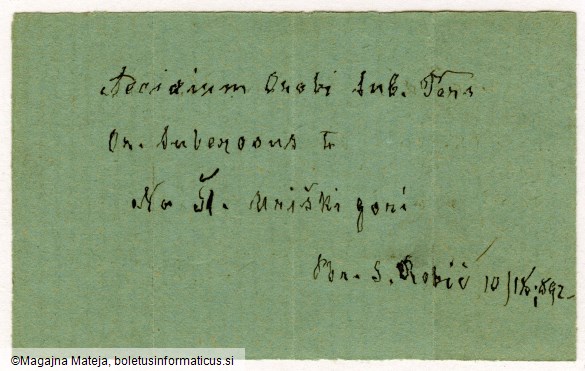 Aecidium Orobi Sub. Pers
Or. tuberosus L
Na Št. Uriški gori
Nbr. S. Robič 10/IX 892
©Magajna Mateja, boletusinformaticus.si